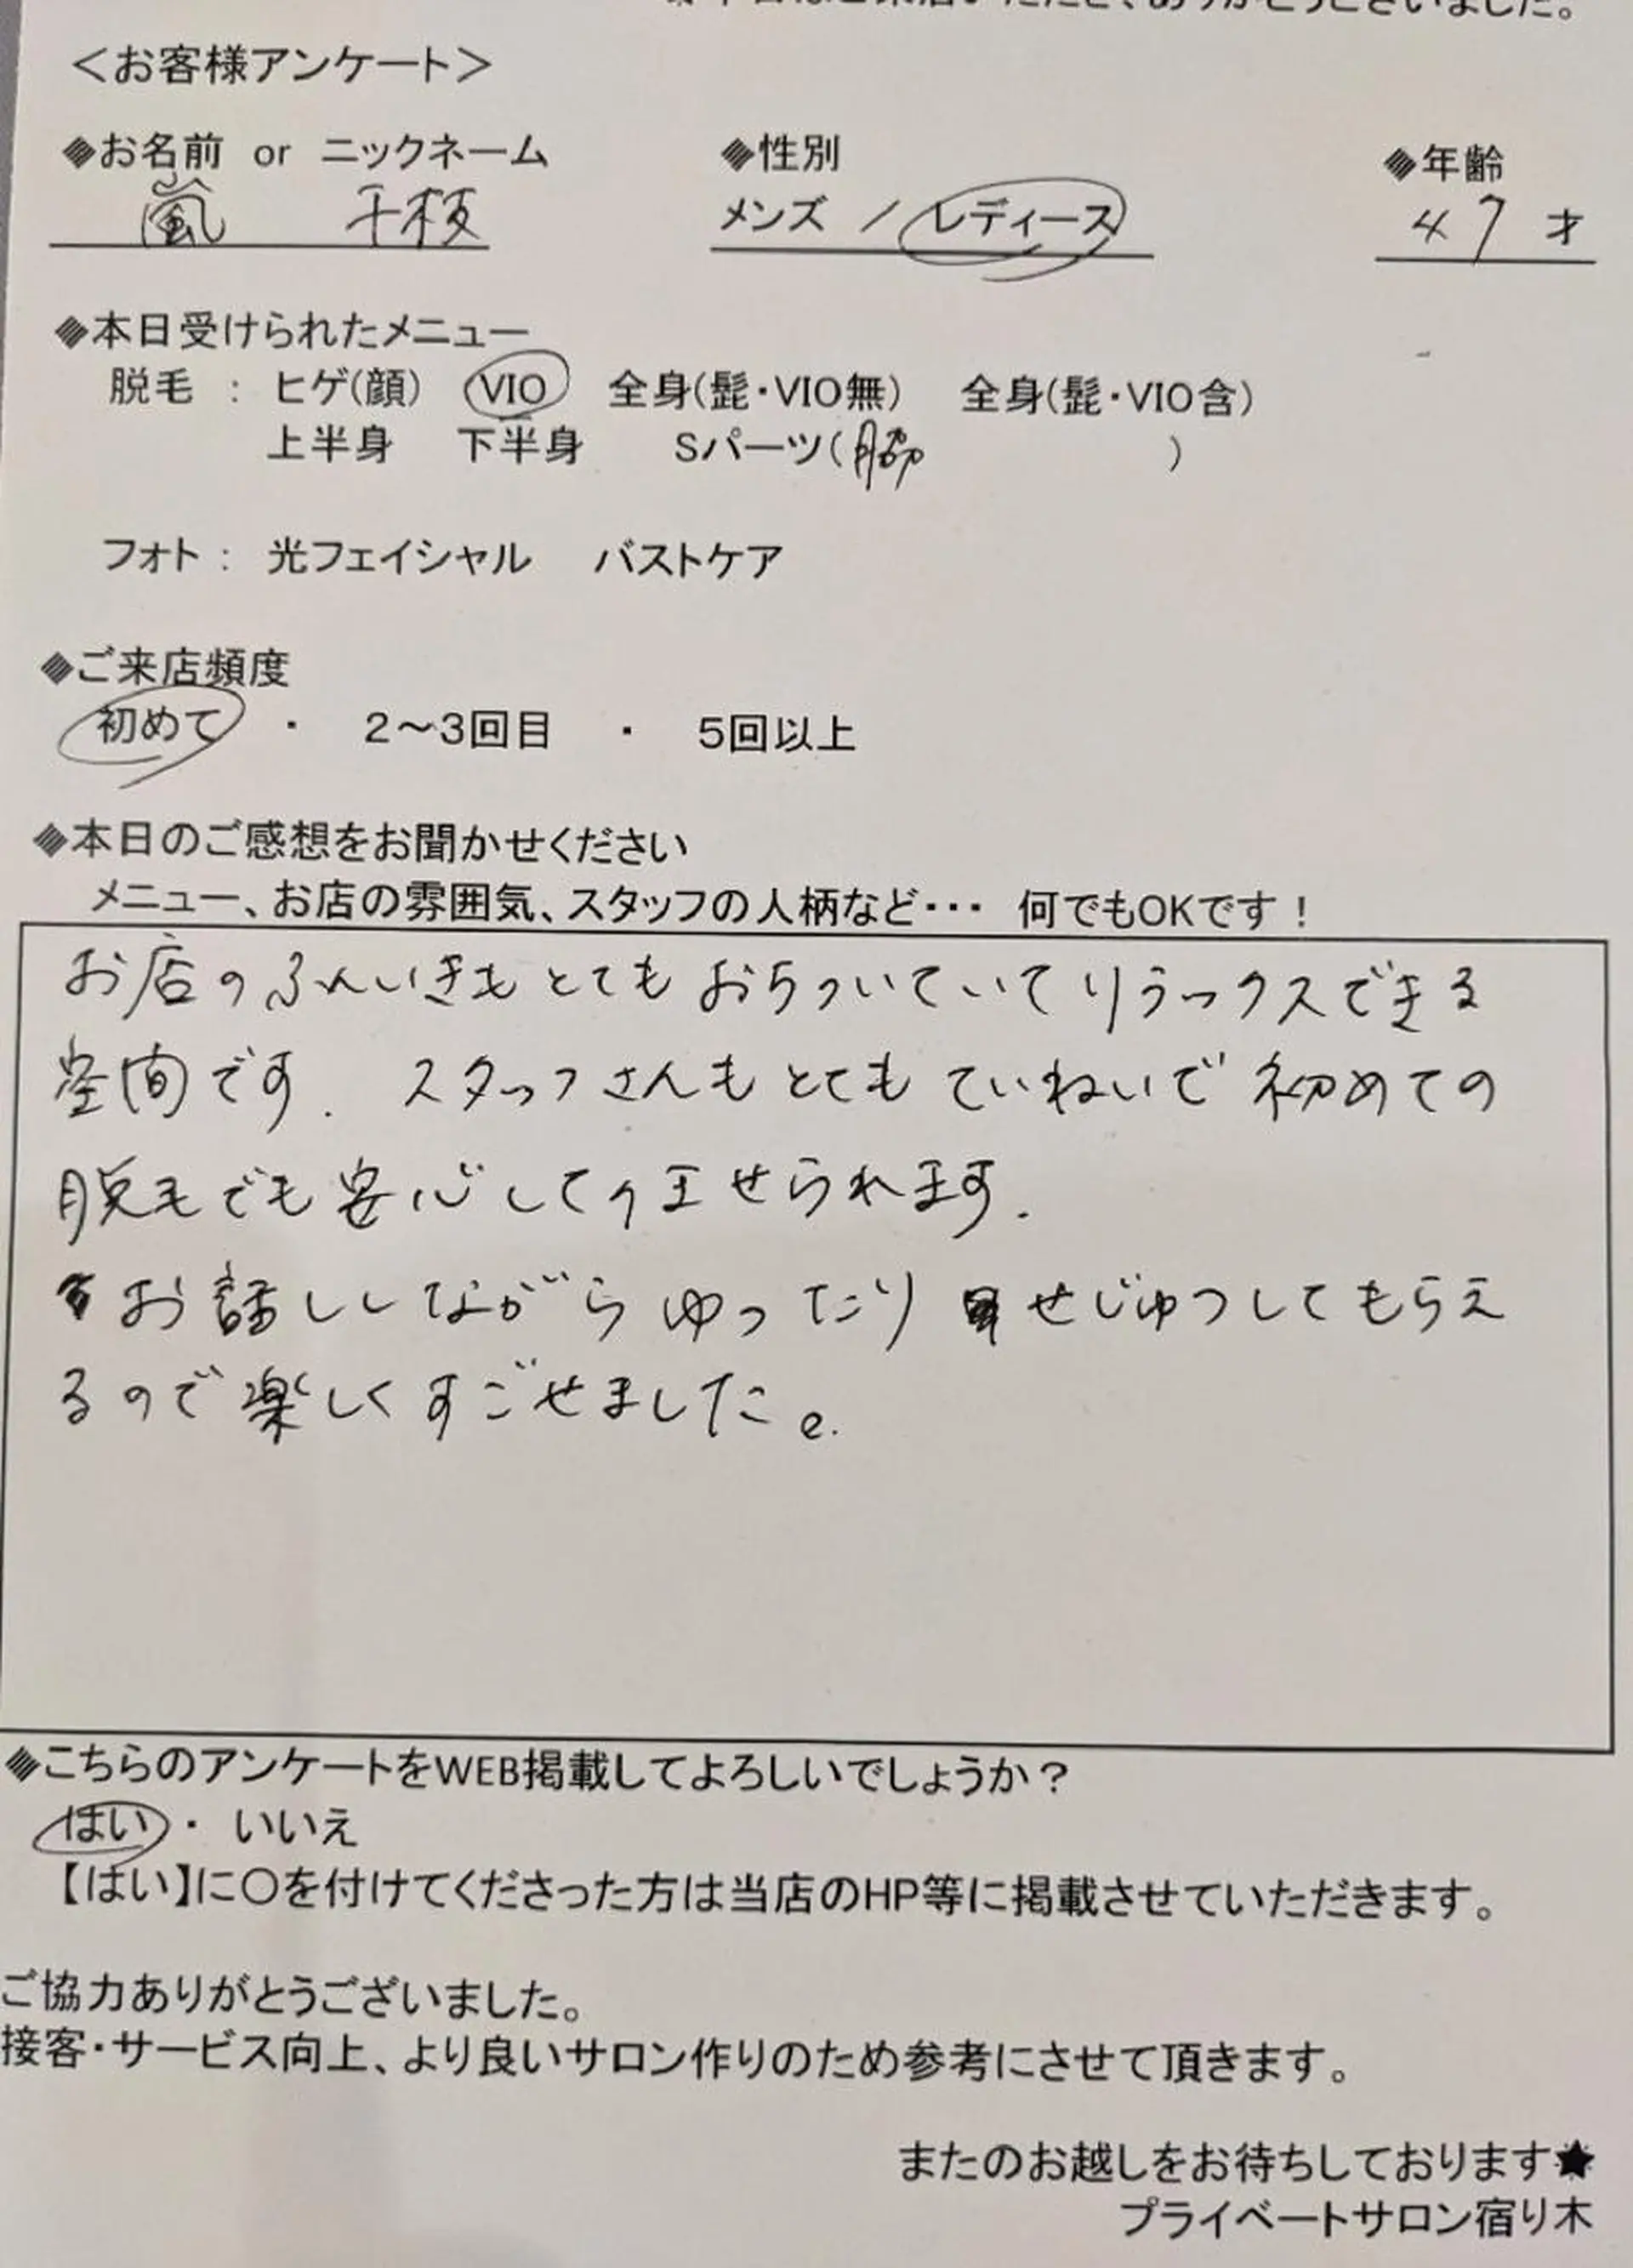 ＜お客様アンケート＞
◆お名前 or ニックネーム ◆性別 ◆年齢
嵐 千枝 メンズ / レディース 47 才
◆本日受けられたメニュー
脱毛 : ヒゲ(顔) VIO 全身(髭・VIO無) 全身(髭・VIO含)
上半身 下半身 Sパーツ(脇 )
フォト : 光フェイシャル バストケア
◆ご来店頻度
初めて ・ 2～3回目 ・ 5回以上
◆本日のご感想をお聞かせください
メニュー、お店の雰囲気、スタッフの人柄など・・・ 何でもOKです！
お店のふんいきもとてもおちついていてリラックスできる
空間です. スタッフさんもとてもていねいで初めての
脱毛でも安心して任せられます.
お話ししながらゆったりせじゅつしてもらえ
るので楽しくすごせました。
◆こちらのアンケートをWEB掲載してよろしいでしょうか？
はい ・ いいえ
【はい】に〇を付けてくださった方は当店のHP等に掲載させていただきます。
ご協力ありがとうございました。
接客・サービス向上、より良いサロン作りのため参考にさせて頂きます。
またのお越しをお待ちしております★
プライベートサロン宿り木